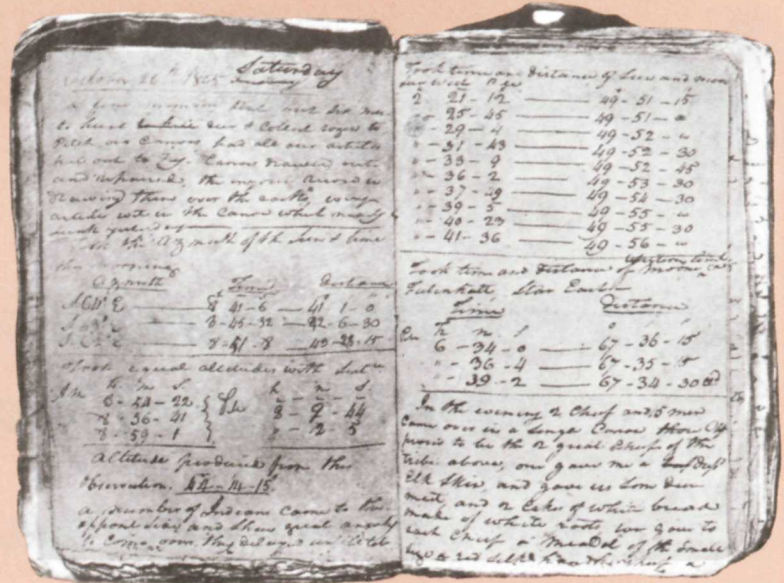 October 26th 1805 Saturday
a fine morning Sent out Six men
to hunt deer & Collect rosin to
Pitch our Canoes has all our articles
put out to Dry. Canoes hauled out
and repaired, the injuries recved in
drawing them over the rocks, every
article wet in the Canoe which nearly
Took the Azmuth of the Sun & time
this morning
Azmuth Time Distance
S. E 8 41-6 41 1-0
S. E 8-45-32 -6-30
S. E 8-51-8 -15
Took equal altitudes with Sext
h m s h m s
8-54-22 2-9-44
8-56-41
8-59-1 " -2-5
Altitude produced from this
Observation. 44-14-15
a number of Indians came to the
opposit Side and Shew great anxiety
to Come over, they delayed untill late
Took time and distance of Sun and moon
Sun West
2 21-12 49-51-15
" -25-45 49-51- "
" -29-4 49-52- "
" -31-43 49-52-30
" -33-9 49-52-45
" -36-2 49-53-30
" -37-49 49-54-30
" -39-5 49-55- "
" -40-23 49-55-30
" -41-36 49-56- "
Took time and Distance of Moons
Star East
Time Distance
h m s
6-34-0 67-36-15
" -36-4 67-35-15
" 39-2 67-34-30
In the evening 2 Chief and 15 men
Came over in a Single Canoe those Chfs
proved to be the 2 great Chiefs of the
tribe above, one gave me a Dressed
Elk Skin, and gave us Som deer
meet, and 2 Cakes of white bread
made of white roots, we gave to
each Chief a Meadel of the Small
Size a red Silk handkerchief a